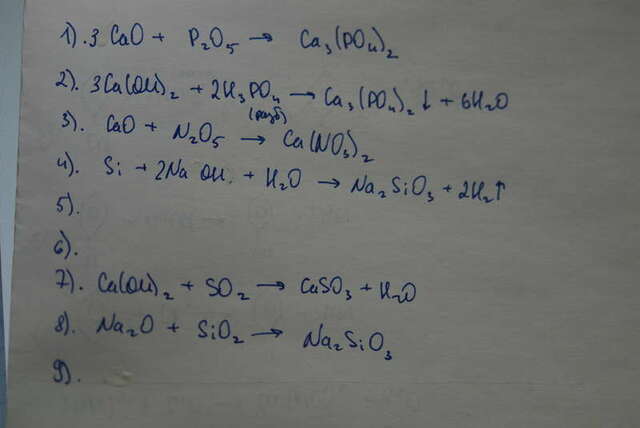 1). 3 CaO + P₂O₅ → Ca₃(PO₄)₂
2). 3Ca(OH)₂ + 2H₃PO₄ → Ca₃(PO₄)₂ ↓ + 6H₂O
(разб)
3). CaO + N₂O₅ → Ca(NO₃)₂
4). Si + 2NaOH + H₂O → Na₂SiO₃ + 2H₂↑
5).
6).
7). Ca(OH)₂ + SO₂ → CaSO₃ + H₂O
8). Na₂O + SiO₂ → Na₂SiO₃
9).